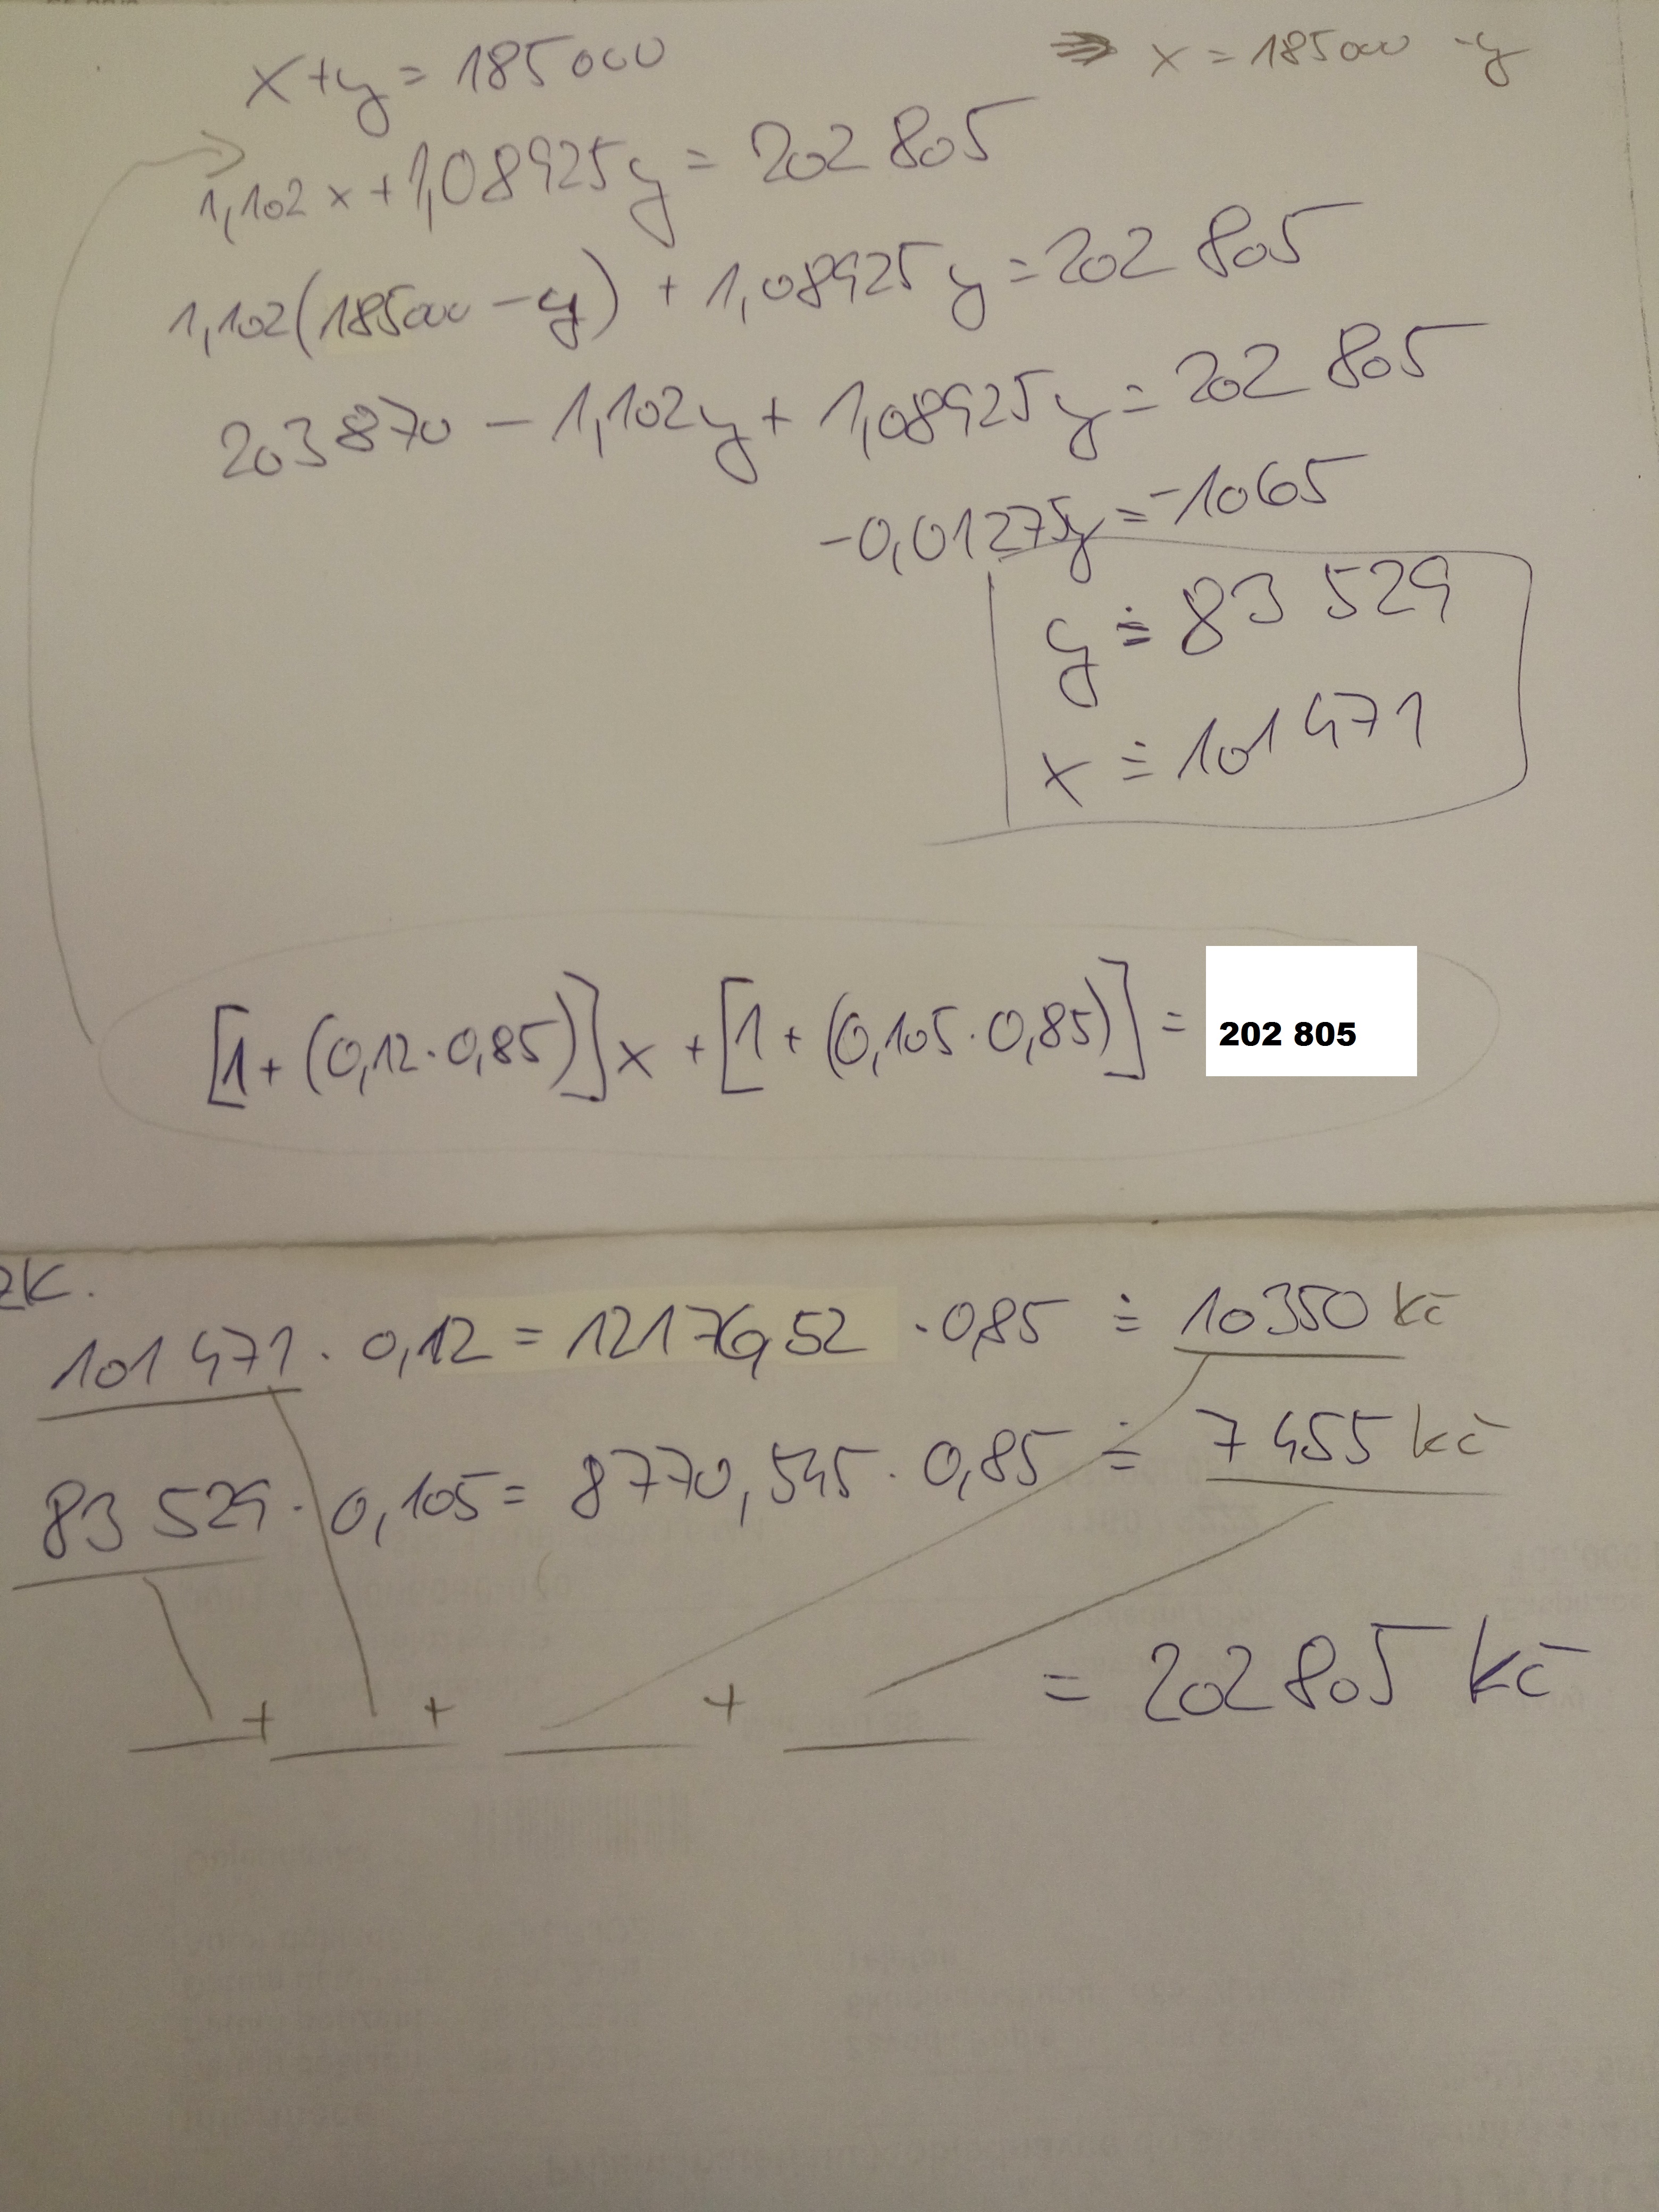 x+y = 185 000
⇒ x = 185 000 - y
1,102 x + 1,08925y = 202 805
1,102(185000 - y) + 1,08925 y = 202 805
203 870 - 1,102y + 1,08925y = 202 805
-0,01275y = -1065
y ≐ 83 529
x ≐ 101 471
[1 + (0,12 · 0,85)] x + [1 + (0,105 · 0,85)] = 202 805
zk.
101 471 · 0,12 = 12176,52 · 0,85 ≐ 10 350 kč
83 529 · 0,105 = 8770,545 · 0,85 ≐ 7 455 kč
__ + __ + __ + __ = 202 805 kč